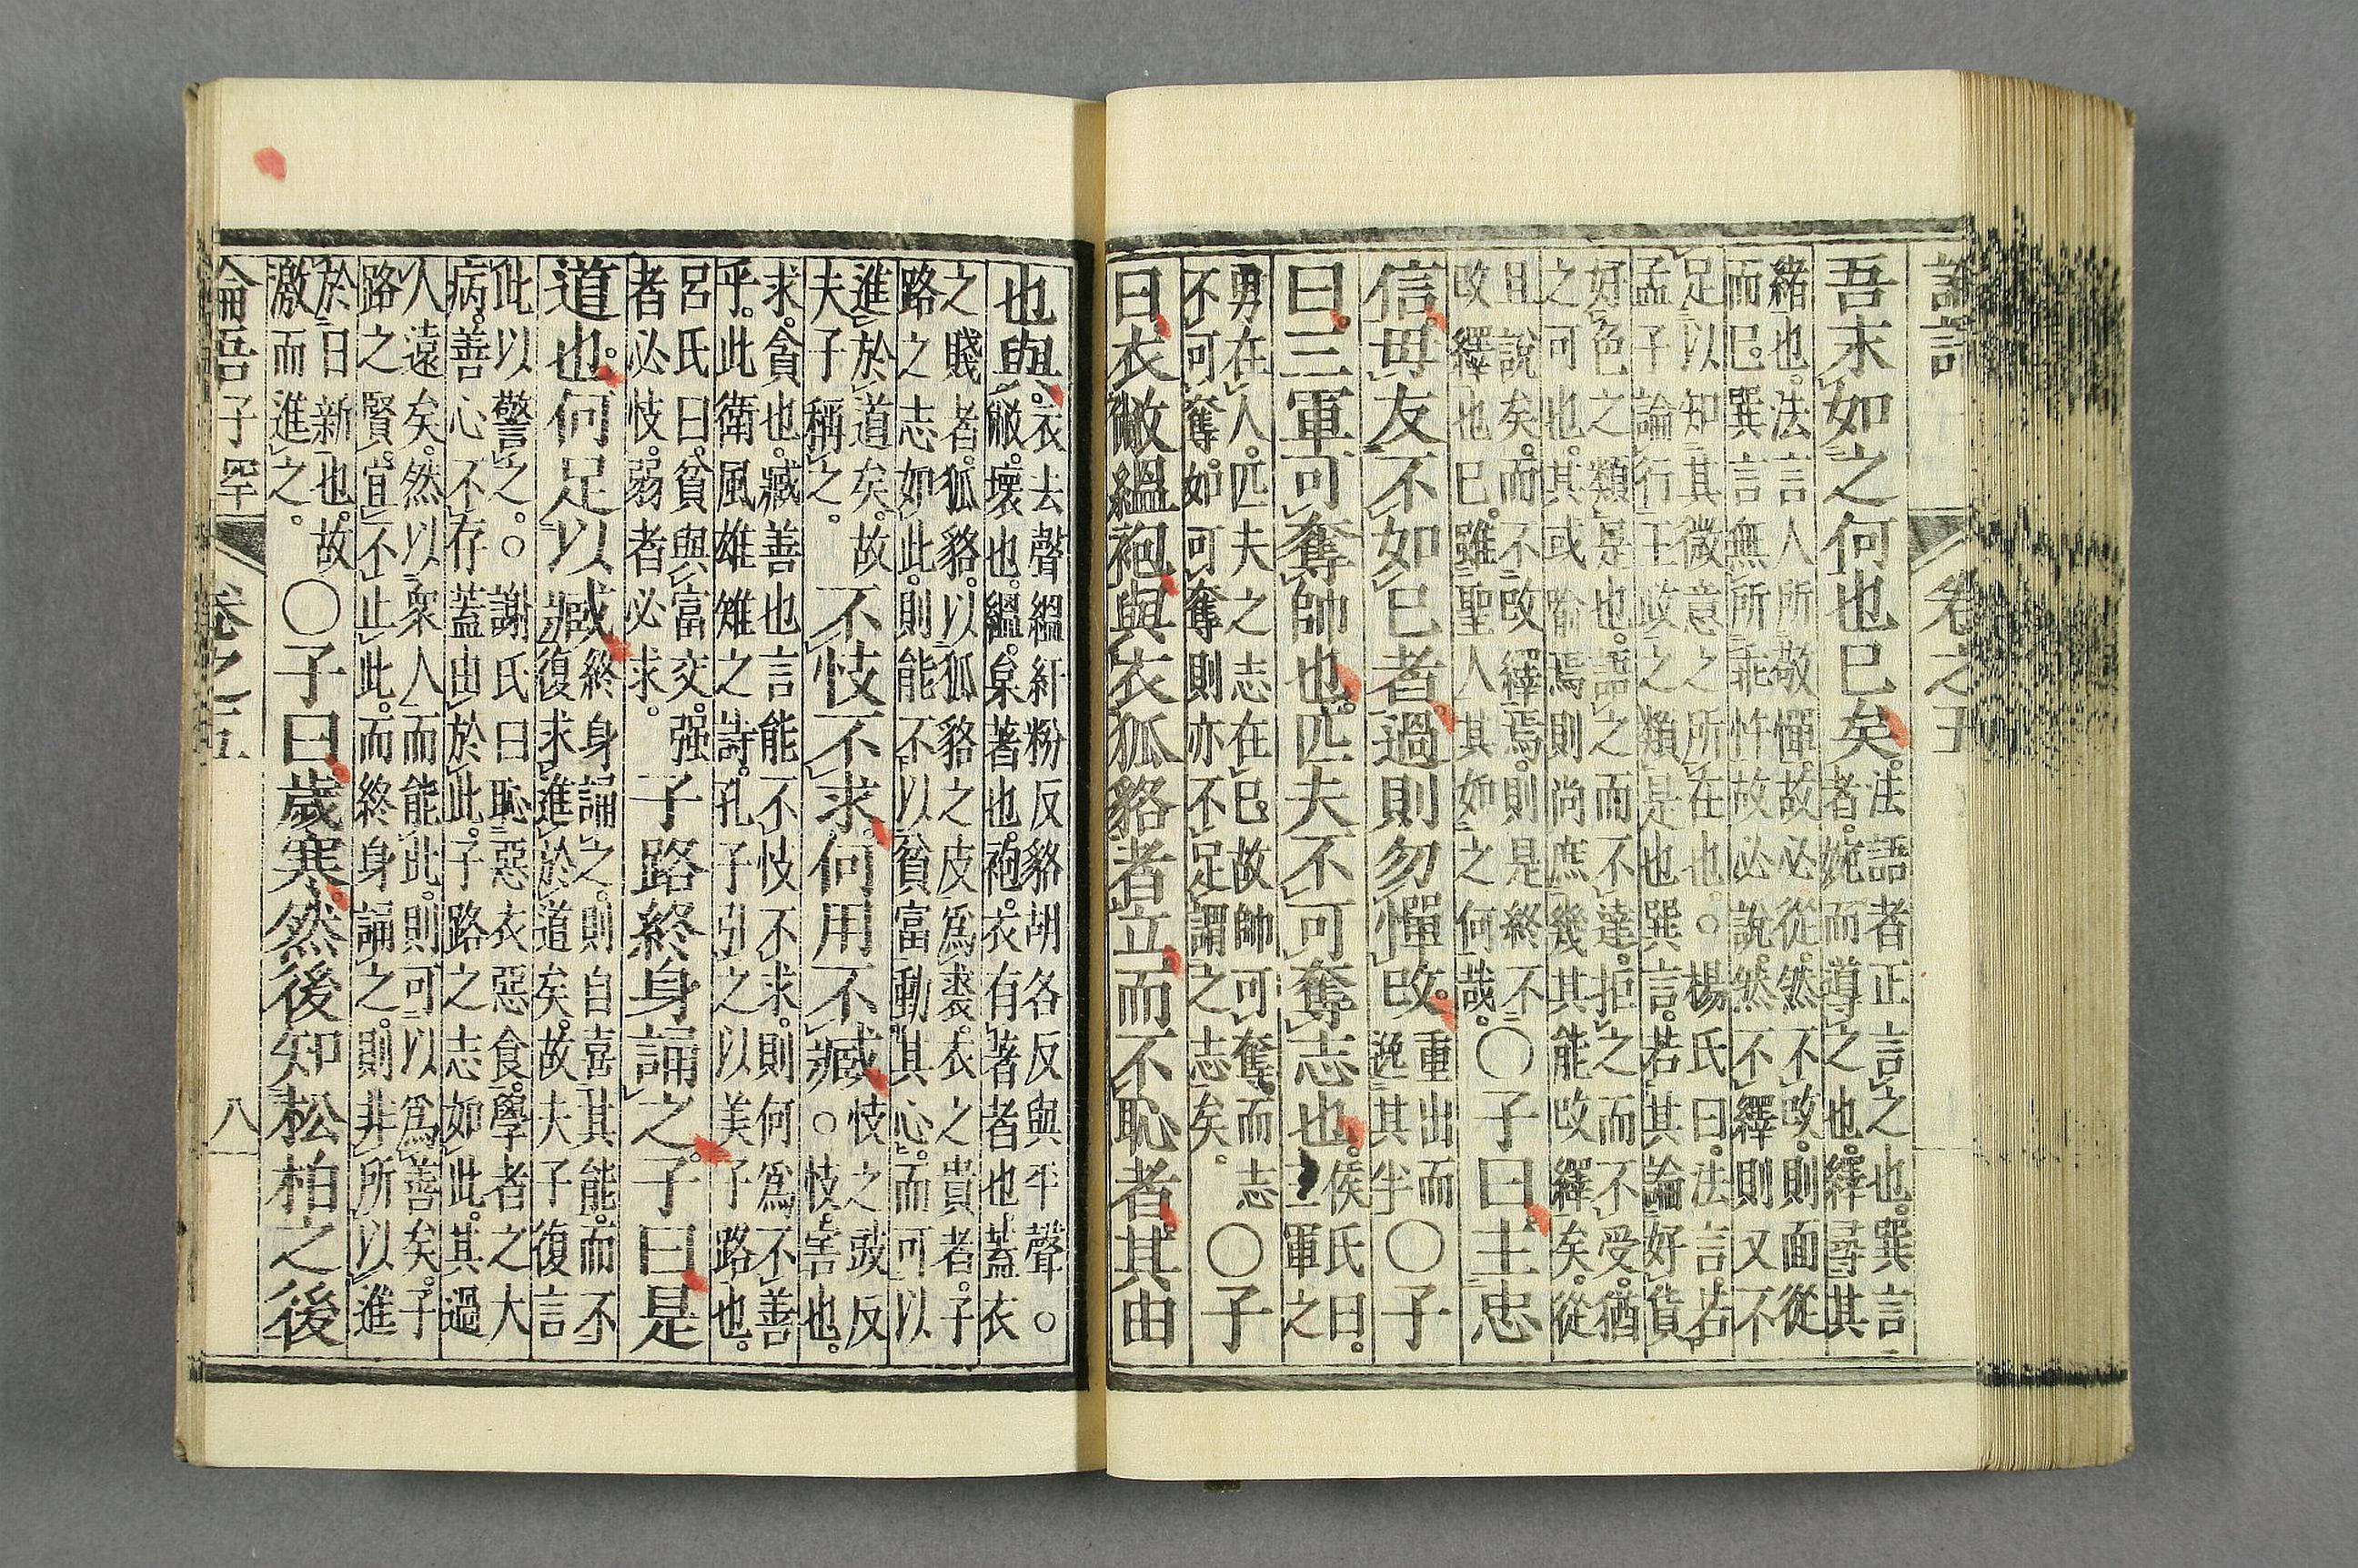 論語 卷之五
吾末如之何也已矣。
法語者正言之也。巽言
者。婉而導之也。繹尋其
緒也。法言人所敬憚。故必從。然不改。則面從
而已。巽言無所乖忤。故必說。然不繹則又不
足以知其微意之所在也。○楊氏曰。法言。若
孟子論行王政之類是也。巽言。若其論好貨
好色之類是也。語之而不達。拒之而不受。猶
之可也。其或喻焉則尚庶幾其能改繹矣。從
且說矣。而不改繹焉。則是終不
改繹也已。雖聖人其如之何哉。
○子曰主忠
信毋友不如已者過則勿憚改。
重出而
逸其半
○子
曰。三軍可奪帥也。匹夫不可奪志也。
侯氏曰。
三軍之
勇在人。匹夫之志在已。故帥可奪。而志
不可奪。如可奪則亦不足謂之志矣。
○子
曰衣敝縕袍與衣狐貉者立而不恥者其由
也與。
衣去聲縕紆粉反貉胡各反與平聲。○
敝。壞也。縕。枲著也。袍。衣有著者也。蓋衣
之賤者。狐貉。以狐貉之皮爲裘。衣之貴者。子
路之志如此。則能不以貧富動其心。而可以
進於道矣。故
夫子稱之。
不忮不求。何用不臧
忮之豉反
○忮。害也。
求。貪也。臧善也言能不忮不求。則何爲不善
乎。此衛風雄雉之詩。孔子引之以美子路也。
呂氏曰。貧與富交。强
者必忮。弱者必求。
子路終身誦之。子曰是
道也。何足以臧
終身誦之。則自喜其能。而不
復求進於道矣。故夫子復言
此以警之。○謝氏曰恥惡衣惡食。學者之大
病。善心不存蓋由於此。子路之志如此。其過
人遠矣。然以衆人而能此。則可以爲善矣。子
路之賢。宜不止此。而終身誦之。則非所以進
於日新也。故
激而進之。
○子曰歲寒然後知松柏之後
論吾子罕 卷之五 八